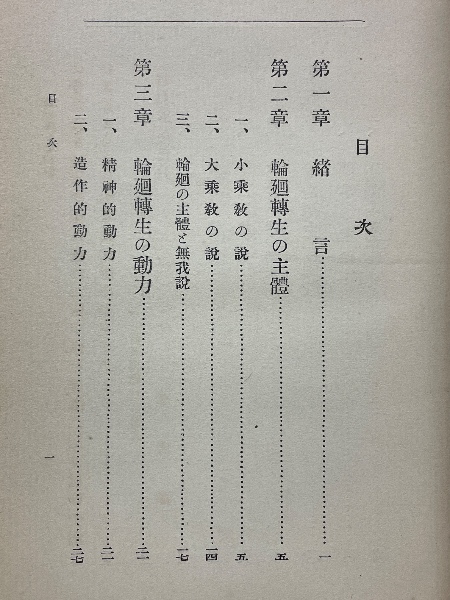 目次
第一章 緒言……一
第二章 輪廻轉生の主體……五
一、小乘敎の說……五
二、大乘敎の說……一四
三、輪廻の主體と無我說……一七
第三章 輪廻轉生の動力……二一
一、精神的動力……二一
二、造作的動力……二七
目次
一